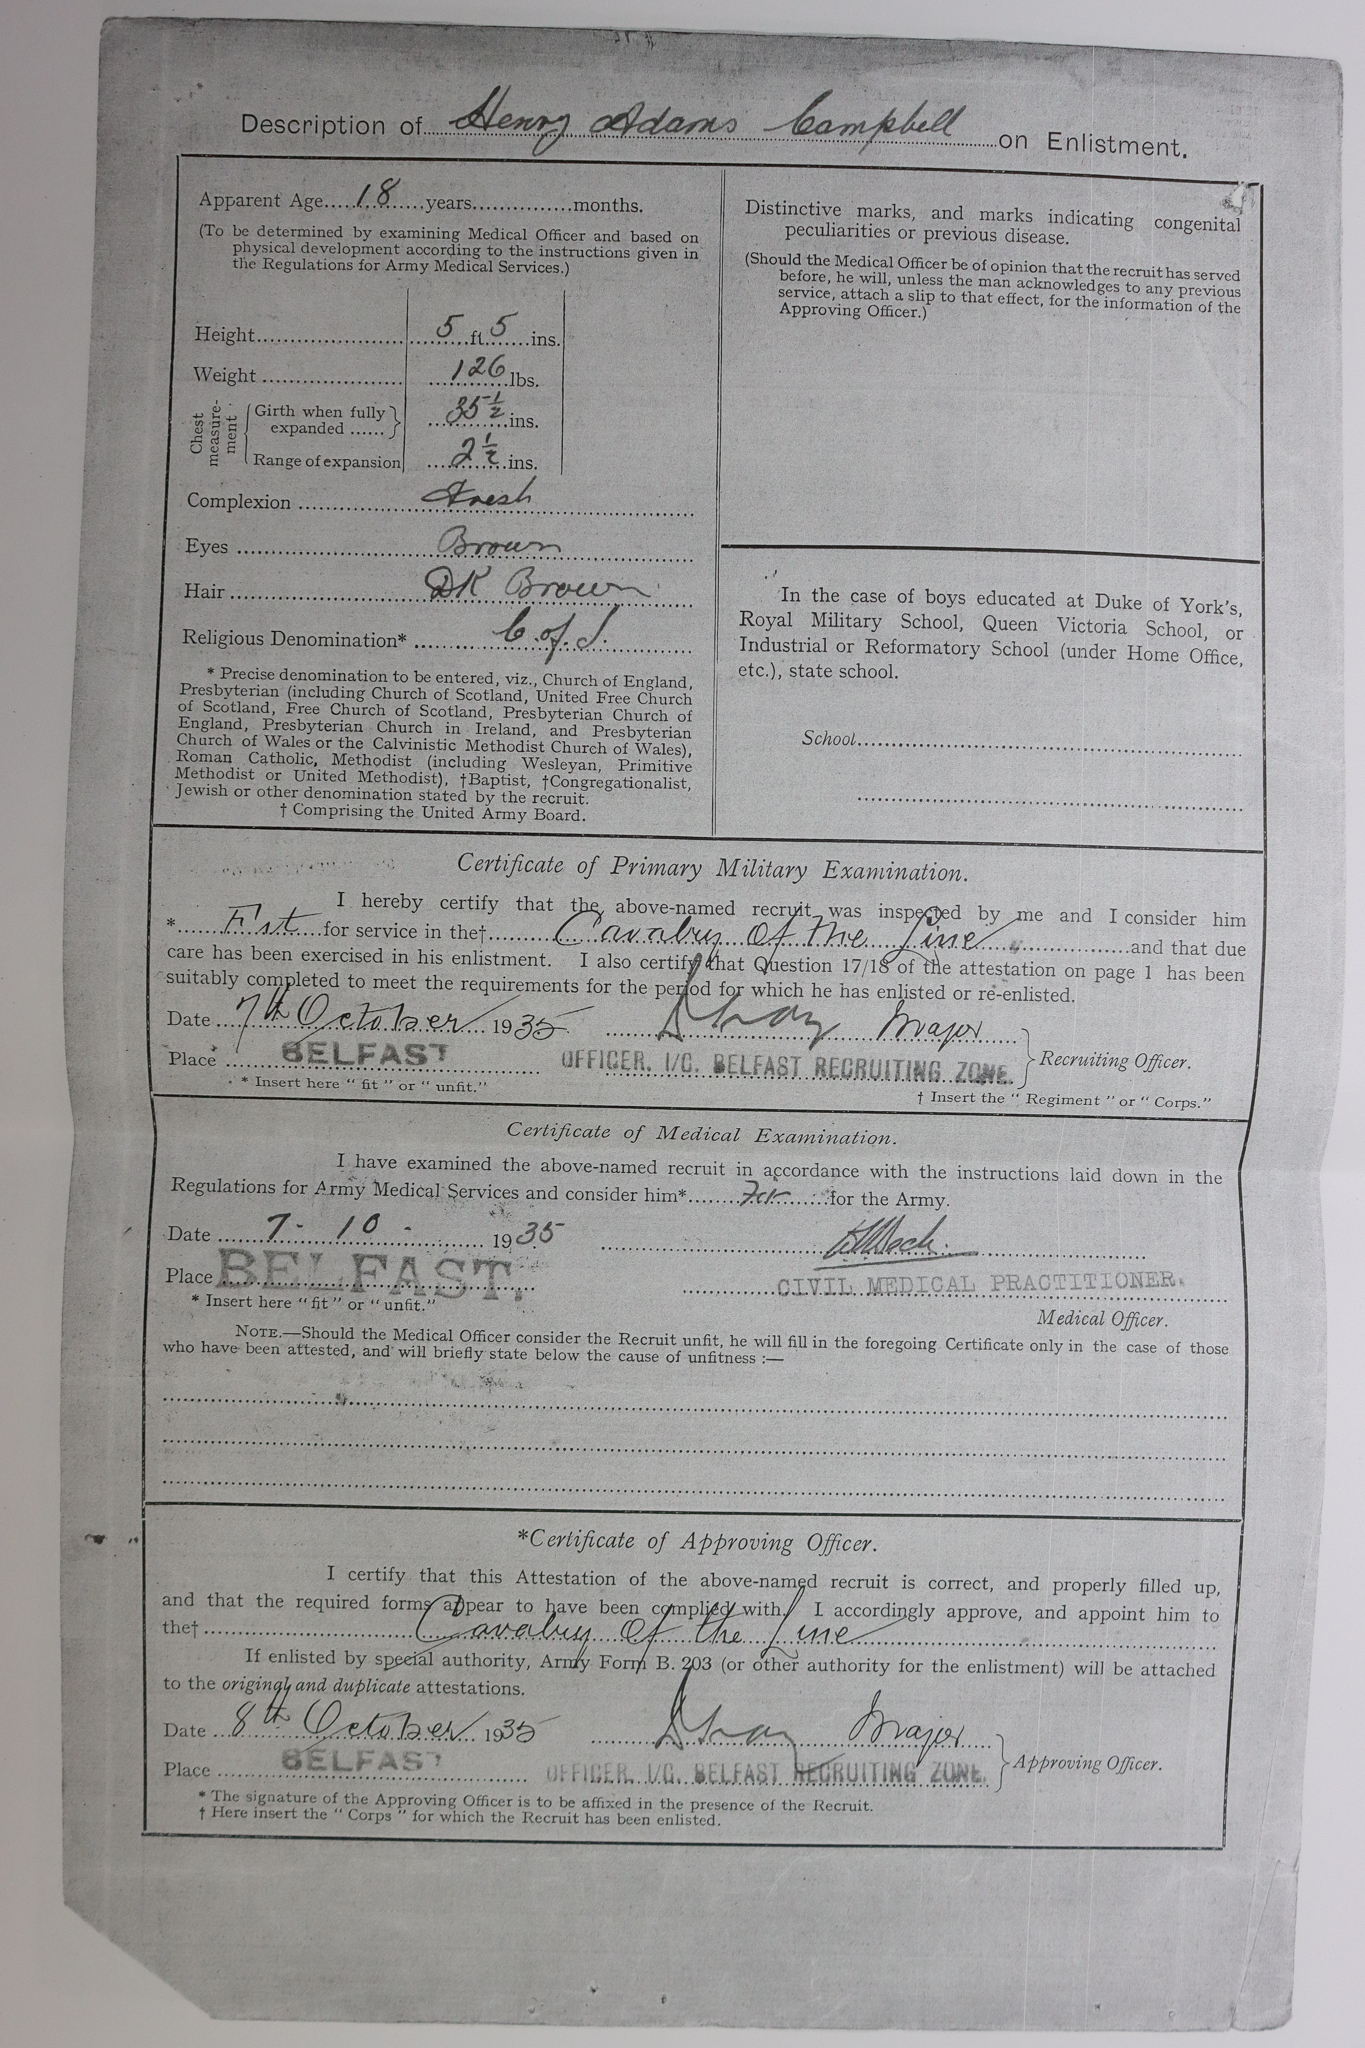 Description of Henry Adams Campbell on Enlistment.
Apparent Age 18 years months.
(To be determined by examining Medical Officer and based on
physical development according to the instructions given in
the Regulations for Army Medical Services.)
Height 5 ft. 5 ins.
Weight 126 lbs.
Chest measure-ment
Girth when fully expanded 35 1/2 ins.
Range of expansion 2 1/2 ins.
Complexion Fresh
Eyes Brown
Hair DK Brown
Religious Denomination* C. of. I.
* Precise denomination to be entered, viz., Church of England,
Presbyterian (including Church of Scotland, United Free Church
of Scotland, Free Church of Scotland, Presbyterian Church of
England, Presbyterian Church in Ireland, and Presbyterian
Church of Wales or the Calvinistic Methodist Church of Wales),
Roman Catholic, Methodist (including Wesleyan, Primitive
Methodist or United Methodist), †Baptist, †Congregationalist,
Jewish or other denomination stated by the recruit.
† Comprising the United Army Board.
Distinctive marks, and marks indicating congenital
peculiarities or previous disease.
(Should the Medical Officer be of opinion that the recruit has served
before, he will, unless the man acknowledges to any previous
service, attach a slip to that effect, for the information of the
Approving Officer.)
In the case of boys educated at Duke of York's,
Royal Military School, Queen Victoria School, or
Industrial or Reformatory School (under Home Office,
etc.), state school.
School
Certificate of Primary Military Examination.
I hereby certify that the above-named recruit was inspected by me and I consider him
* Fit for service in the† Cavalry Of the Line and that due
care has been exercised in his enlistment. I also certify that Question 17/18 of the attestation on page 1 has been
suitably completed to meet the requirements for the period for which he has enlisted or re-enlisted.
Date 7th October 1935 Major
Place BELFAST OFFICER. I/C. BELFAST RECRUITING ZONE. Recruiting Officer.
* Insert here "fit" or "unfit."
† Insert the "Regiment" or "Corps."
Certificate of Medical Examination.
I have examined the above-named recruit in accordance with the instructions laid down in the
Regulations for Army Medical Services and consider him* Fit for the Army.
Date 7 - 10 - 1935
Place BELFAST. CIVIL MEDICAL PRACTITIONER.
* Insert here "fit" or "unfit."
Medical Officer.
NOTE.—Should the Medical Officer consider the Recruit unfit, he will fill in the foregoing Certificate only in the case of those
who have been attested, and will briefly state below the cause of unfitness :—
*Certificate of Approving Officer.
I certify that this Attestation of the above-named recruit is correct, and properly filled up,
and that the required forms appear to have been complied with. I accordingly approve, and appoint him to
the† Cavalry Of the Line
If enlisted by special authority, Army Form B. 203 (or other authority for the enlistment) will be attached
to the original and duplicate attestations.
Date 8th October 1935 Major
Place BELFAST OFFICER. I/C. BELFAST RECRUITING ZONE. Approving Officer.
* The signature of the Approving Officer is to be affixed in the presence of the Recruit.
† Here insert the "Corps" for which the Recruit has been enlisted.